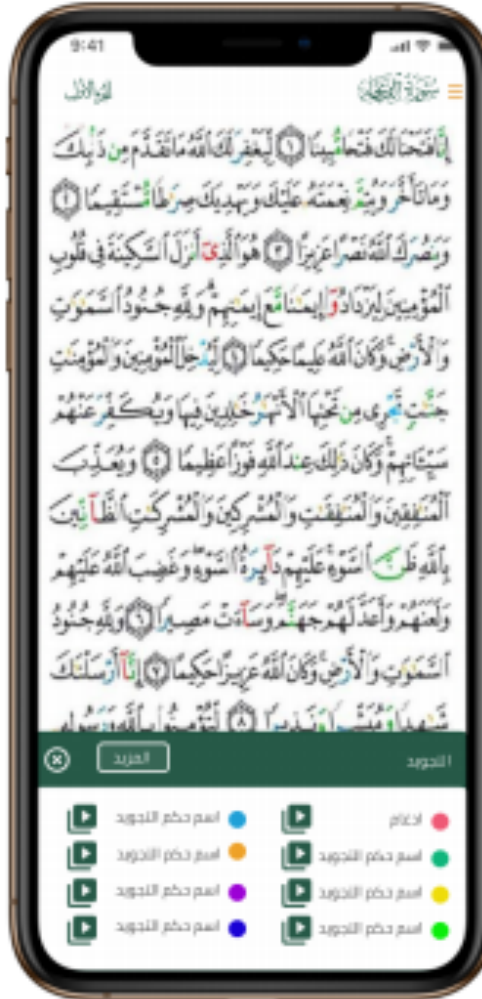 9:41
الجزء الأول
سُورَةُ
إِنَّا فَتَحْنَا لَكَ فَتْحًا مُّبِينًا ١ لِّيَغْفِرَ لَكَ ٱللَّهُ مَا تَقَدَّمَ مِن ذَنۢبِكَ
وَمَا تَأَخَّرَ وَيُتِمَّ نِعْمَتَهُۥ عَلَيْكَ وَيَهْدِيَكَ صِرَٰطًا مُّسْتَقِيمًا ٢
وَيَنصُرَكَ ٱللَّهُ نَصْرًا عَزِيزًا ٣ هُوَ ٱلَّذِىٓ أَنزَلَ ٱلسَّكِينَةَ فِى قُلُوبِ
ٱلْمُؤْمِنِينَ لِيَزْدَادُوٓا۟ إِيمَٰنًا مَّعَ إِيمَٰنِهِمْ ۗ وَلِلَّهِ جُنُودُ ٱلسَّمَٰوَٰتِ
وَٱلْأَرْضِ ۚ وَكَانَ ٱللَّهُ عَلِيمًا حَكِيمًا ٤ لِّيُدْخِلَ ٱلْمُؤْمِنِينَ وَٱلْمُؤْمِنَٰتِ
جَنَّٰتٍ تَجْرِى مِن تَحْتِهَا ٱلْأَنْهَٰرُ خَٰلِدِينَ فِيهَا وَيُكَفِّرَ عَنْهُمْ
سَيِّـَٔاتِهِمْ ۚ وَكَانَ ذَٰلِكَ عِندَ ٱللَّهِ فَوْزًا عَظِيمًا ٥ وَيُعَذِّبَ
ٱلْمُنَٰفِقِينَ وَٱلْمُنَٰفِقَٰتِ وَٱلْمُشْرِكِينَ وَٱلْمُشْرِكَٰتِ ٱلظَّآنِّينَ
بِٱللَّهِ ظَنَّ ٱلسَّوْءِ ۚ عَلَيْهِمْ دَآئِرَةُ ٱلسَّوْءِ ۖ وَغَضِبَ ٱللَّهُ عَلَيْهِمْ
وَلَعَنَهُمْ وَأَعَدَّ لَهُمْ جَهَنَّمَ ۖ وَسَآءَتْ مَصِيرًا ٦ وَلِلَّهِ جُنُودُ
ٱلسَّمَٰوَٰتِ وَٱلْأَرْضِ ۚ وَكَانَ ٱللَّهُ عَزِيزًا حَكِيمًا ٧ إِنَّآ أَرْسَلْنَٰكَ
شَٰهِدًا وَمُبَشِّرًا وَنَذِيرًا ٨ لِّتُؤْمِنُوا۟ بِٱللَّهِ وَرَسُولِهِۦ
التجويد
المزيد
ادغام
اسم حكم التجويد
اسم حكم التجويد
اسم حكم التجويد
اسم حكم التجويد
اسم حكم التجويد
اسم حكم التجويد
اسم حكم التجويد